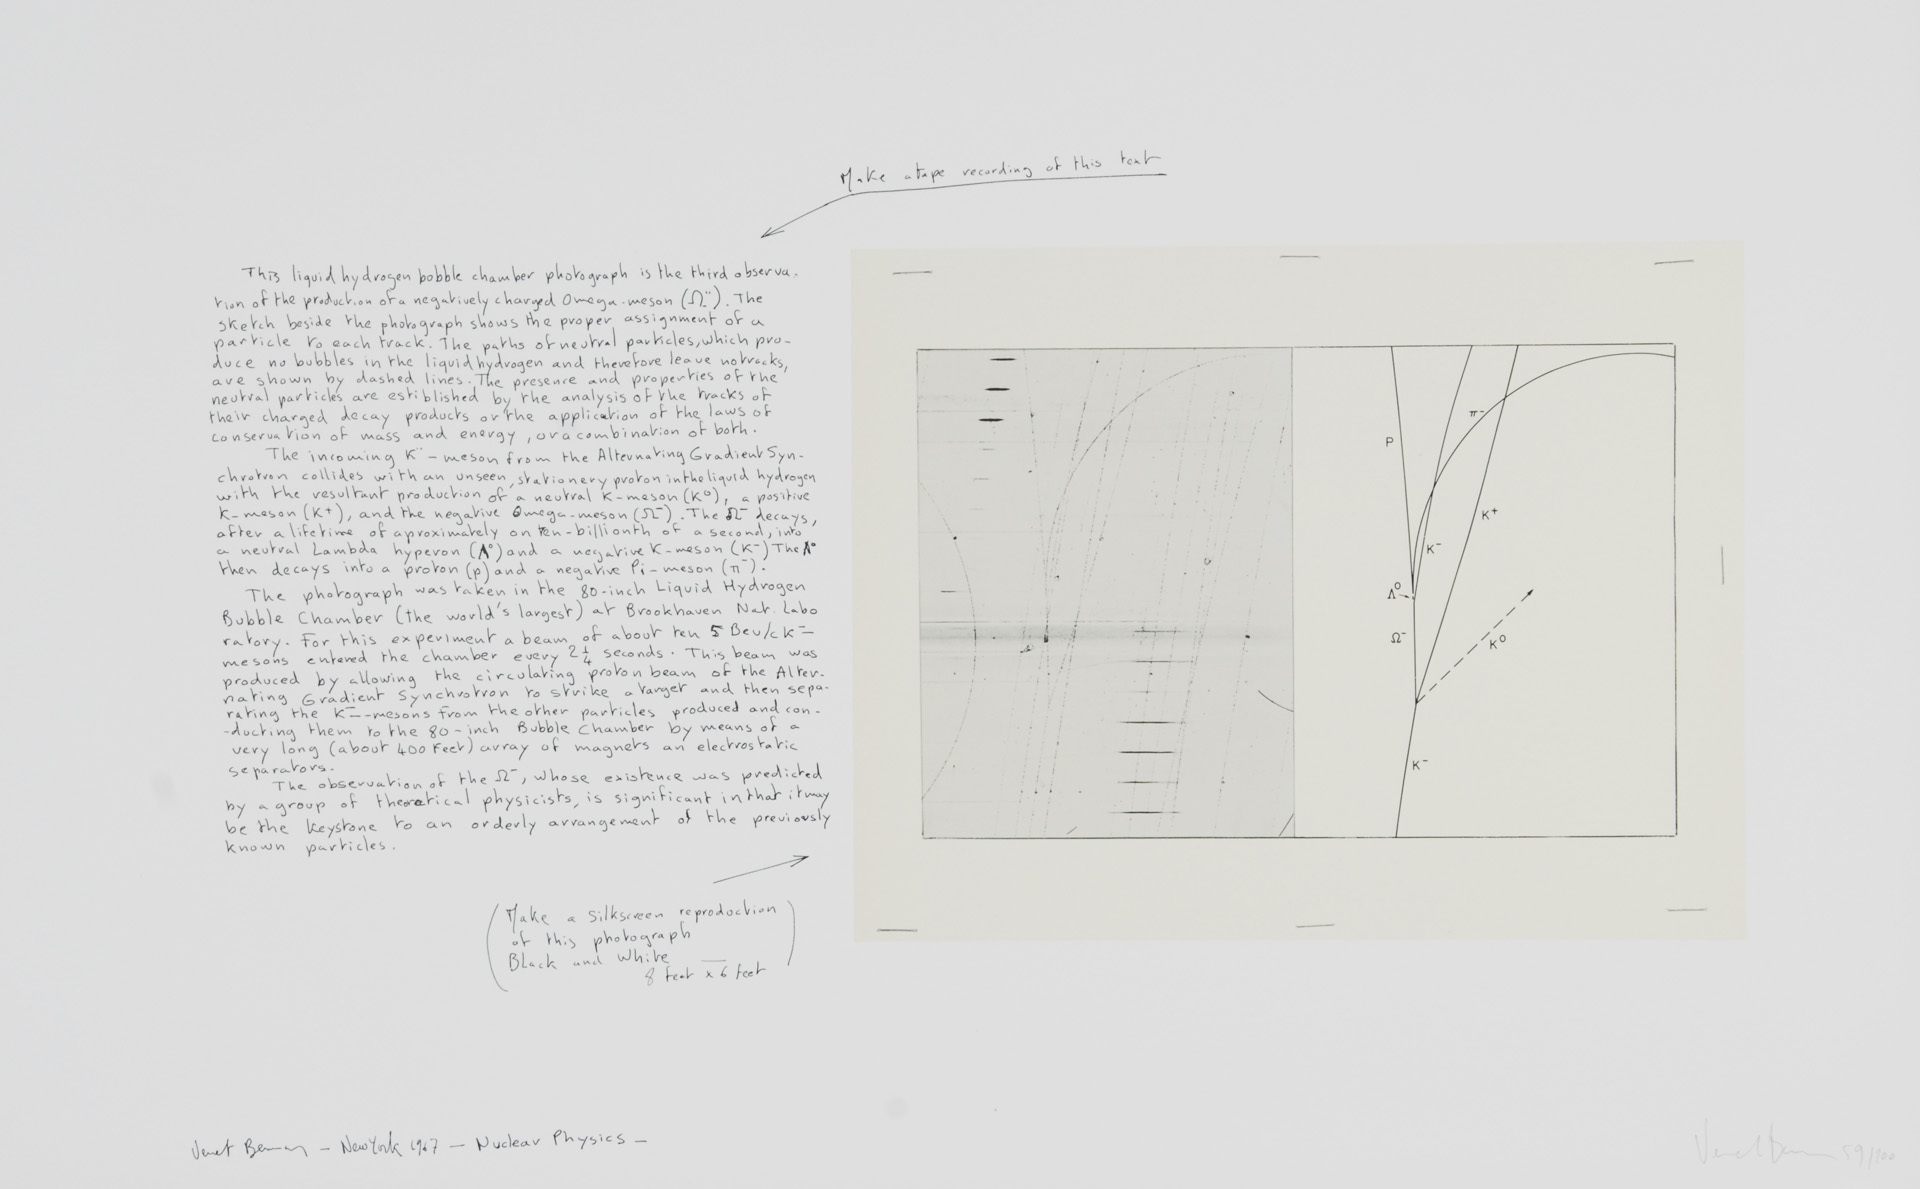 Make a tape recording of this text
This liquid hydrogen bobble chamber photograph is the third observa-
tion of the production of a negatively charged Omega-meson (Ω⁻). The
sketch beside the photograph shows the proper assignment of a
particle to each track. The paths of neutral particles, which pro-
duce no bubbles in the liquid hydrogen and therefore leave no tracks,
are shown by dashed lines. The presence and properties of the
neutral particles are estiblished by the analysis of the tracks of
their charged decay products or the application of the laws of
conservation of mass and energy, or a combination of both.
The incoming K⁻-meson from the Alternating Gradient Syn-
chrotron collides with an unseen, stationery proton in the liquid hydrogen
with the resultant production of a neutral K-meson (K⁰), a positive
K-meson (K+), and the negative Omega-meson (Ω⁻). The Ω⁻ decays,
after a lifetime of aproximately on ten-billionth of a second, into
a neutral Lambda hyperon (Λ⁰) and a negative K-meson (K⁻) The Λ⁰
then decays into a proton (p) and a negative Pi-meson (π⁻).
The photograph was taken in the 80-inch Liquid Hydrogen
Bubble Chamber (the world's largest) at Brookhaven Nat. Labo
ratory. For this experiment a beam of about ten 5 Bev/c K⁻
mesons entered the chamber every 2¼ seconds. This beam was
produced by allowing the circulating proton beam of the Alter-
nating Gradient Synchrotron to strike a target and then sepa-
rating the K⁻-mesons from the other particles produced and con-
-ducting them to the 80-inch Bubble Chamber by means of a
very long (about 400 Feet) array of magnets an electrostatic
separators.
The observation of the Ω⁻, whose existence was predicted
by a group of theoretical physicists, is significant in that it may
be the keystone to an orderly arrangement of the previously
known particles.
(Make a silkscreen reproduction
of this photograph
Black and White
8 feet x 6 feet)
π⁻
P
K+
K⁻
Λ⁰
Ω⁻
K⁰
K⁻
Venet Bernar – New York 1967 – Nuclear Physics –
Venet Bernar 59/100